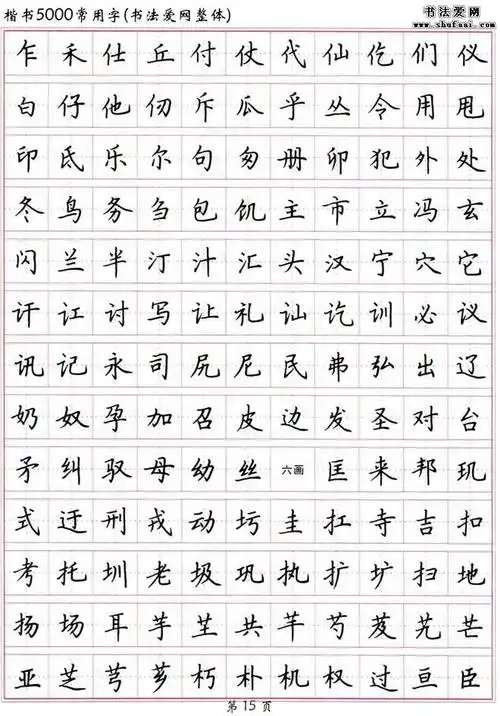 楷书5000常用字(书法爱网整体)
书法爱网
www.shufaai.com
乍禾仕丘付仗代仙仡们仪
白仔他仞斥瓜乎丛令用甩
印氐乐尔句匆册卯犯外处
冬鸟务刍包饥主市立冯玄
闪兰半汀汁汇头汉宁穴它
讦讧讨写让礼讪讫训必议
讯记永司尻尼民弗弘出辽
奶奴孕加召皮边发圣对台
矛纠驭母幼丝六画匡来邦玑
式迂刑戎动圬圭扛寺吉扣
考托圳老圾巩执扩圹扫地
扬场耳芋芏共芊芍芨芄芒
亚芝芎芗朽朴机权过亘臣
第15页